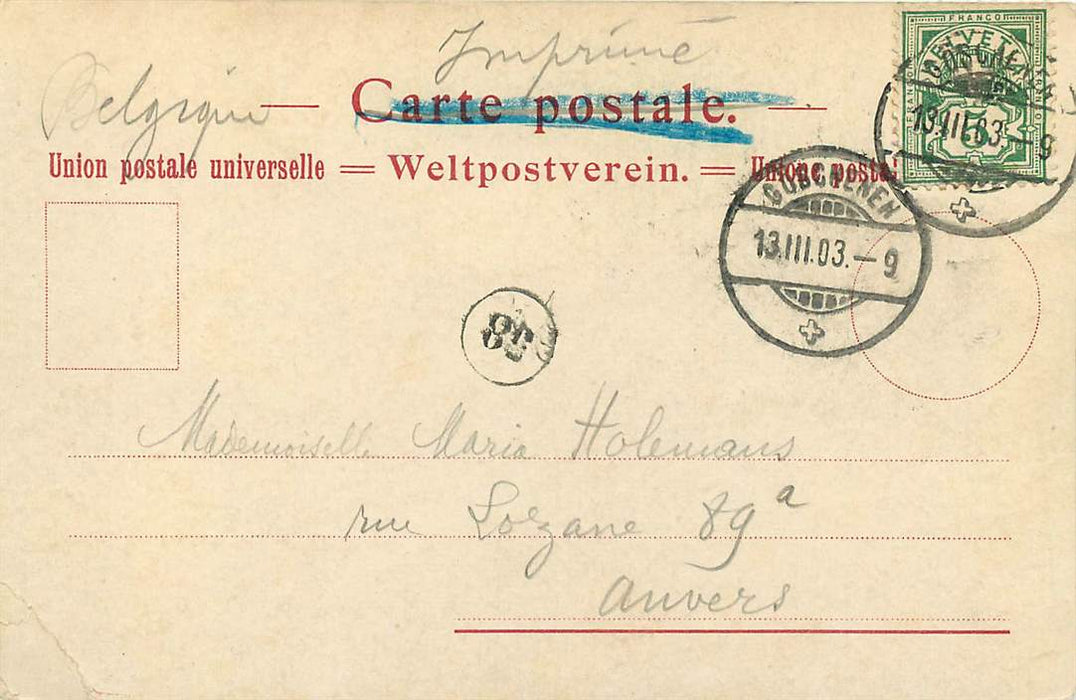 Imprimé
Belgique
Carte postale.
Union postale universelle = Weltpostverein. = Unione posta
FRANCO
HELVETIA
5
GÖSCHENEN
13.III.03.–9
GÖSCHENEN
13.III.03.–9
38
Mademoiselle Maria Holemans
rue Lozane 89a
Anvers